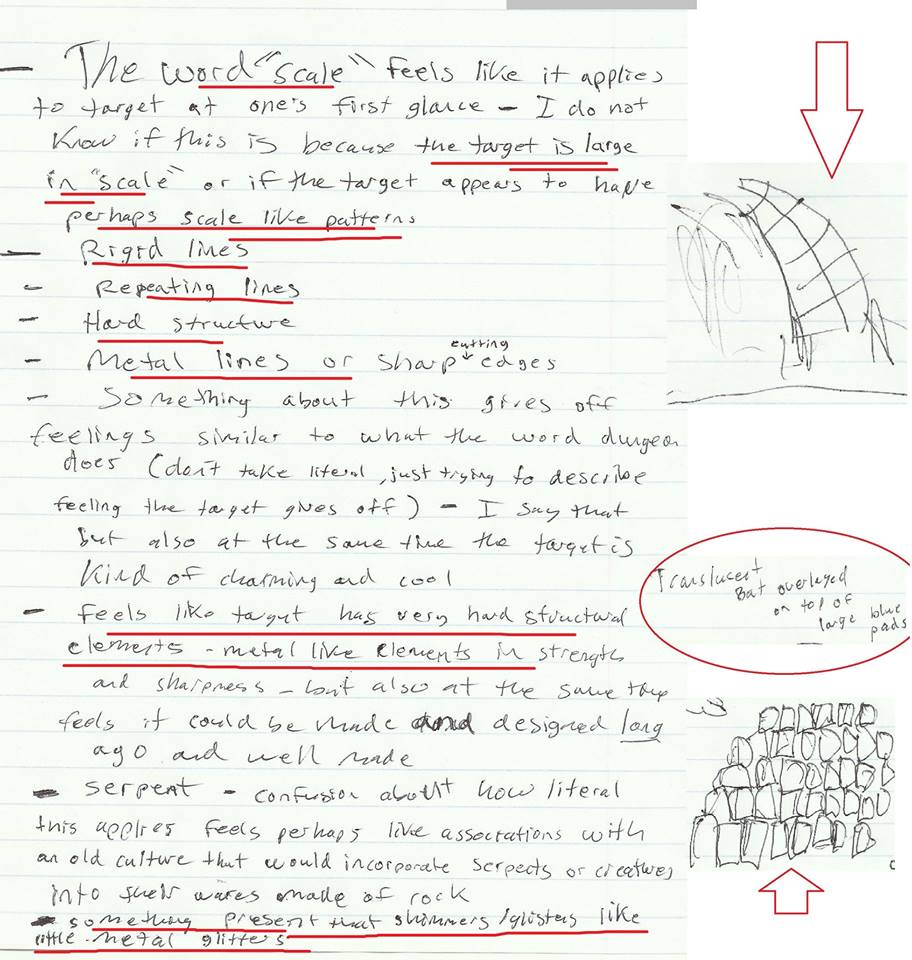 - The word "scale" feels like it applies
to target at one's first glance - I do not
know if this is because the target is large
in "scale" or if the target appears to have
perhaps scale like patterns
- Rigid lines
- Repeating lines
- Hard structure
- Metal lines or sharp cutting edges
- Something about this gives off
feelings similar to what the word dungeon
does (don't take literal, just trying to describe
feeling the target gives off) - I say that
but also at the same time the target is
kind of charming and cool
- feels like target has very hard structural
elements - metal like elements in strength
and sharpness - but also at the same time
feels it could be made and designed long
ago and well made
- serpent - confusion about how literal
this applies feels perhaps like associations with
an old culture that would incorporate serpects or creatures
into their wares made of rock
- something present that shimmers/glisters like
little metal glitters
Translucent
But overlayed
on top of
large blue
pads